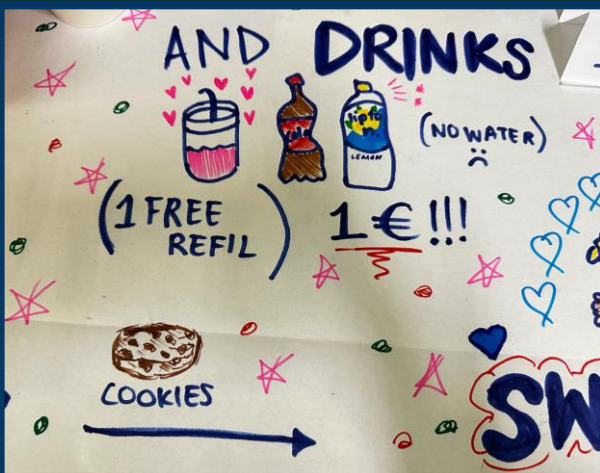 AND DRINKS
Cola
Lipton
LEMON
(NO WATER)
(1 FREE
REFIL)
1 € !!!
COOKIES
SW